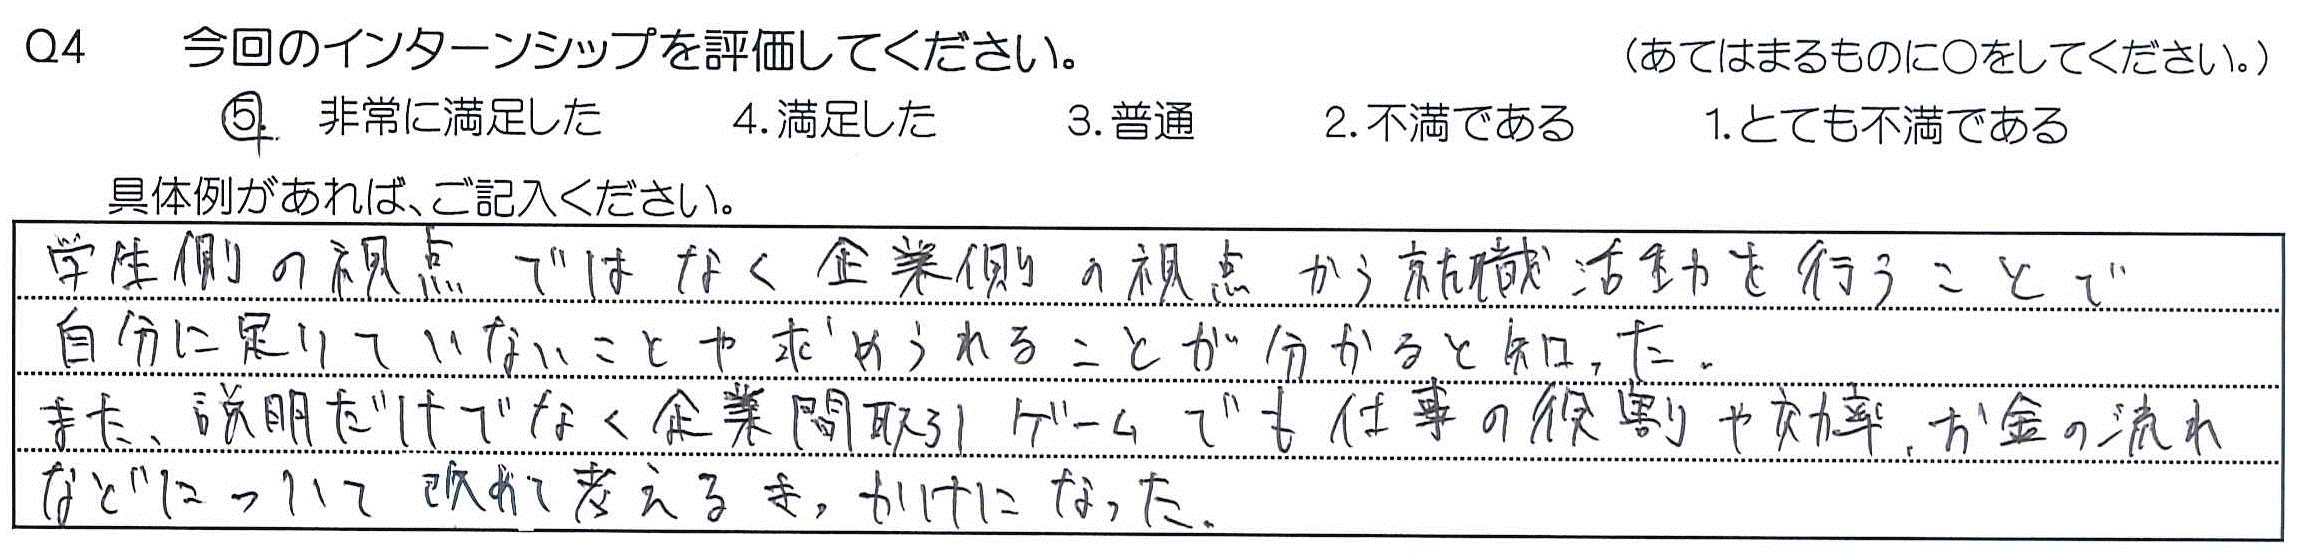 Q4 今回のインターンシップを評価してください。 (あてはまるものに○をしてください。)
5. 非常に満足した 4.満足した 3.普通 2.不満である 1.とても不満である
具体例があれば、ご記入ください。
学生側の視点ではなく企業側の視点から就職活動を行うことで
自分に足りていないことや求められることが分かると知った。
また、説明だけでなく企業間取引ゲームでも仕事の役割や効率、お金の流れ
などについて改めて考えるきっかけになった。